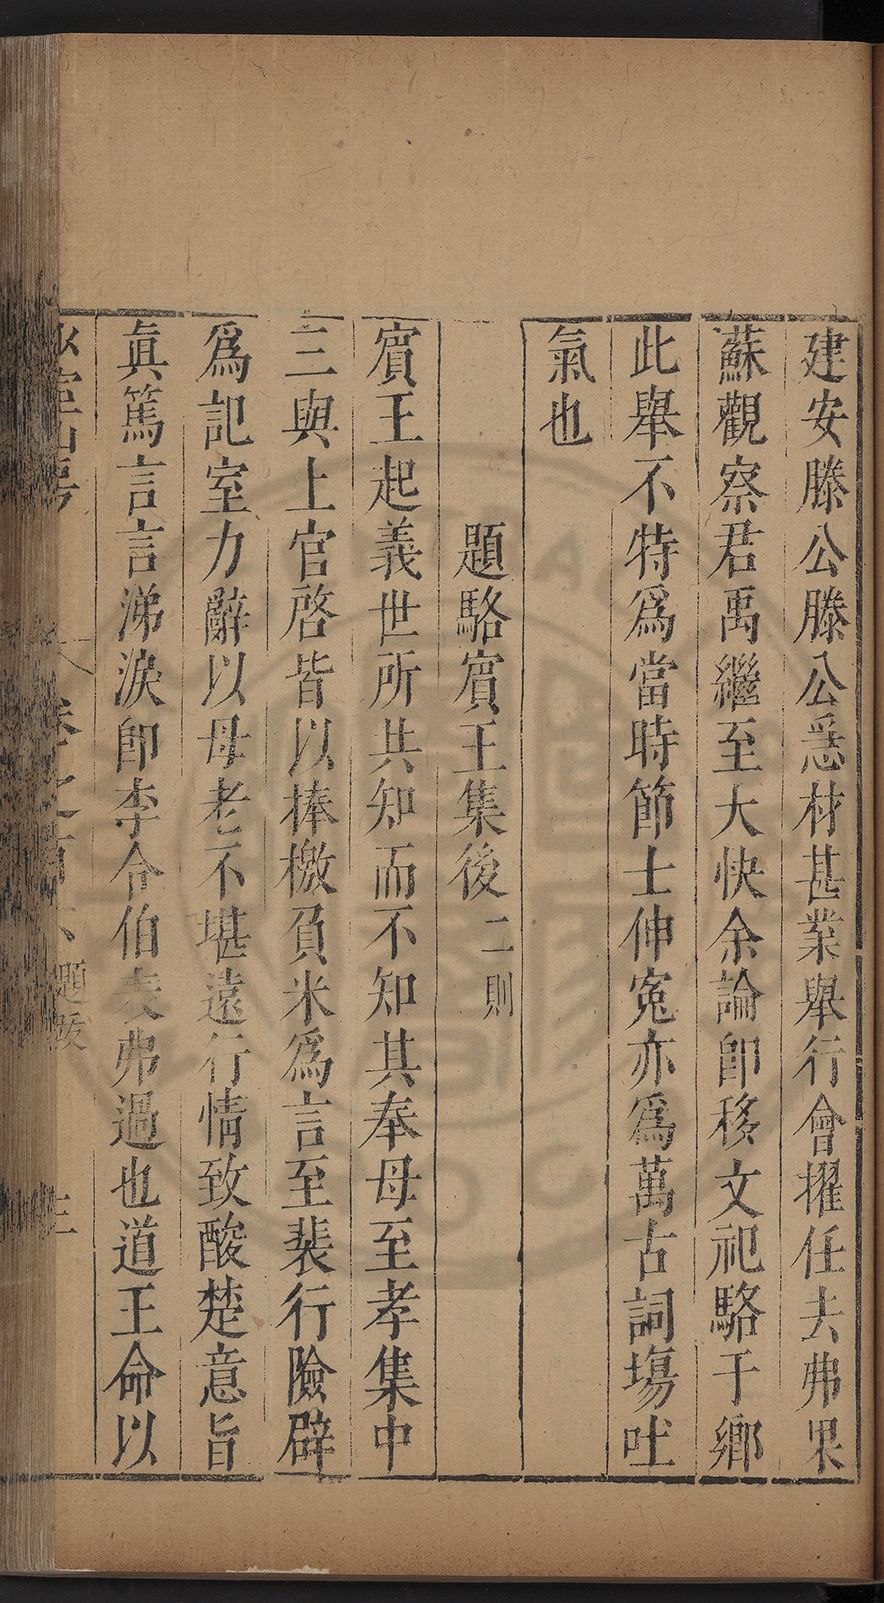 建安滕公滕公忎材甚業舉行會擢任去弗果
蘇觀察君禹繼至大快余論卽移文祀駱于鄉
此舉不特爲當時節士伸寃亦爲萬古詞塲吐
氣也
題駱賓王集後二則
賓王起義世所共知而不知其奉母至孝集中
三與上官啓皆以捧檄負米爲言至裴行險辟
爲記室力辭以母老不堪遠行情致酸楚意旨
眞篤言言涕淚卽李令伯表弗過也道王命以
題跋